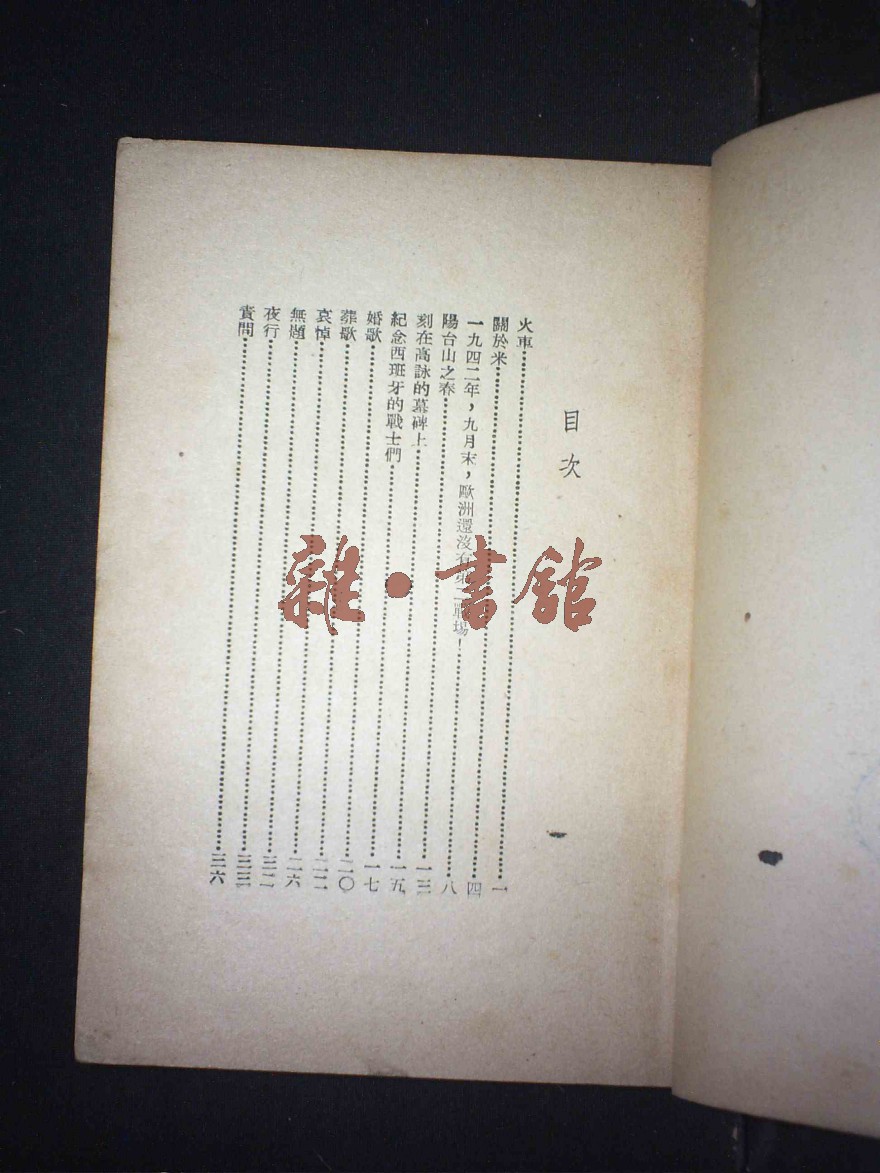 目次
火車……一
關於米……四
一九四二年，九月末，歐洲還沒有第二戰場！……八
陽台山之春……一三
刻在高詠的墓碑上……一五
紀念西班牙的戰士們……一七
婚歌……二〇
葬歌……二二
哀悼……二六
無題……三二
夜行……三三
責問……三六
雜·書館